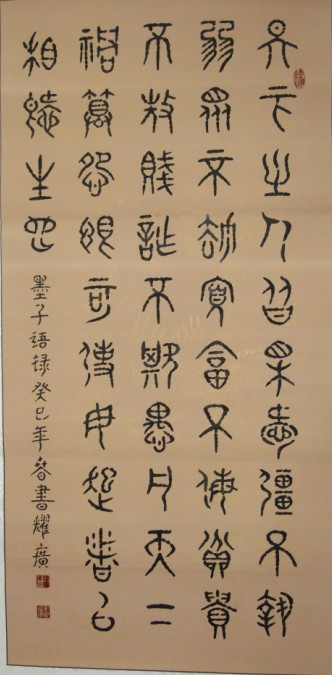 天下之人皆相愛彊不執
弱眾不劫寡富不侮貧貴
不敖賤詐不欺愚凡天下
禍篡怨恨可使毋起者以
相愛生也
墨子語錄癸巳年春書耀廣